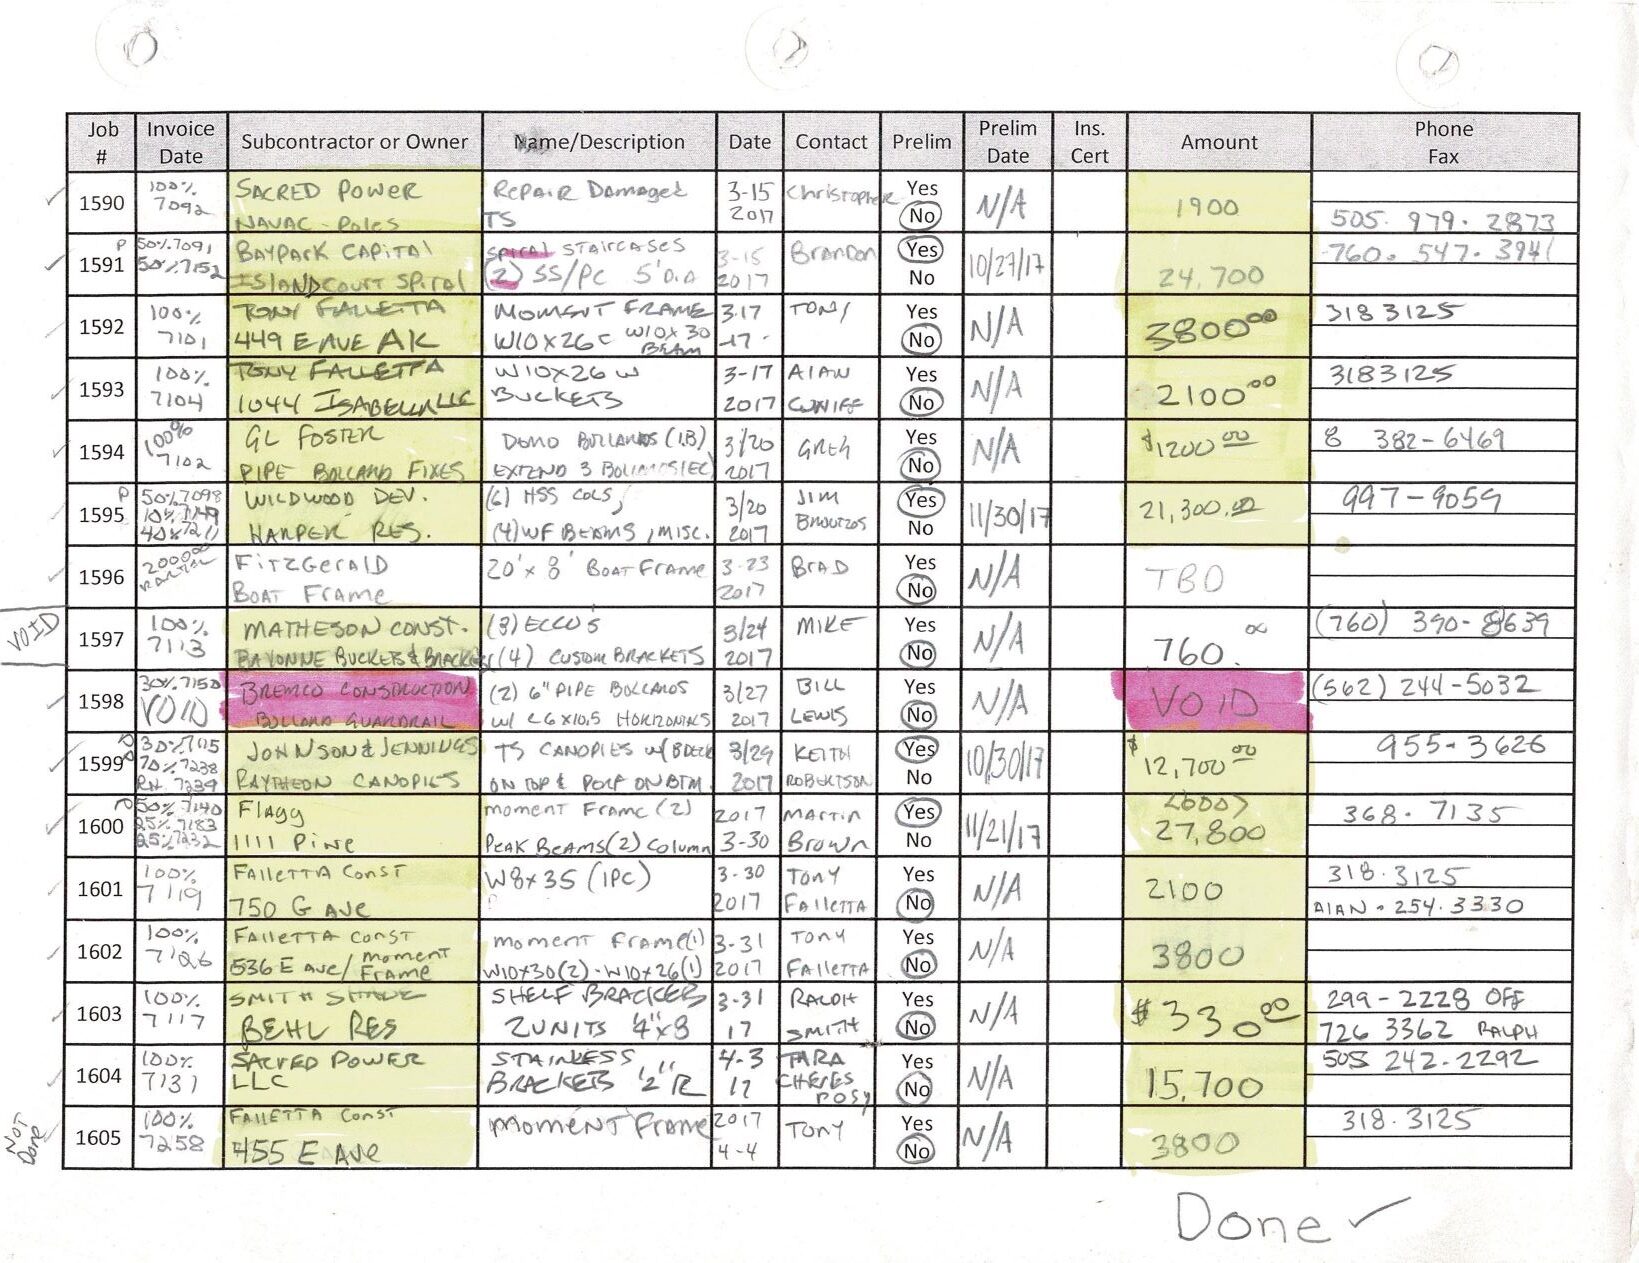 Job # Invoice Date Subcontractor or Owner Name/Description Date Contact Prelim Prelim Date Ins. Cert Amount Phone Fax
1590 100% 7092 SACRED POWER NAVAC - Poles Repair Damaged TS 3-15 2017 Christopher Yes No N/A 1900 505. 979. 2873
1591 P 50% 7091 50% 7152 BAYPARK CAPITAL ISLANDCOURT SPIRAL SPIRAL STAIRCASES (2) SS/PC 5' DIA 3-15 2017 Brandon Yes No 10/27/17 24,700 760. 547. 3941
1592 100% 7101 TONY FALLETTA 449 E AVE AK MOMENT FRAME W10x26 C W10x30 BEAM 3-17 -17- TONY Yes No N/A 3800 00 318 3125
1593 100% 7104 TONY FALLETTA 1044 ISABELLA LLC W10x26 W BUCKETS 3-17 2017 ALAN CUNIFF Yes No N/A 2100 00 318 3125
1594 100% 7102 GL FOSTER PIPE BOLLARD FIXES DEMO BOLLARDS (1.B) EXTEND 3 BOLLARDS(EC) 3/20 2017 GREG Yes No N/A $1200 00 8 382-6469
1595 P 50% 7098 10% 7149 40% 7211 WILDWOOD DEV. HARPER RES. (6) HSS COLS, (4) WF BEAMS, MISC. 3/20 2017 JIM Yes No 11/30/17 21,300.00 997-9059
1596 2000 00 PARTIAL FITZGERALD BOAT FRAME 20' x 8' BOAT FRAME 3-23 2017 BRAD Yes No N/A TBD
VOID
1597 100% 7113 MATHESON CONST. BAYONNE BUCKETS & BRACKETS (3) ECCO'S (4) CUSTOM BRACKETS 3/24 2017 MIKE Yes No N/A 760. 00 (760) 390-8639
1598 30% 7150 VOID BREMCO CONSTRUCTION BOLLARD GUARDRAIL (2) 6" PIPE BOLLARDS W/ C6x10.5 HORIZONTALS 3/27 2017 BILL LEWIS Yes No N/A VOID (562) 244-5032
1599 30% 7115 70% 7238 RET. 7239 JOHNSON & JENNINGS RAYTHEON CANOPIES TS CANOPIES W/ BDECK ON TOP & PERF ON BTM. 3/29 2017 KEITH ROBERTSON Yes No 10/30/17 $12,700 00 955-3626
1600 50% 7140 25% 7183 25% 7232 Flagg 1111 Pine moment Frame (2) PEAK BEAMS(2) Column 2017 3-30 MARTIN Brown Yes No 11/21/17 <600> 27,800 368. 7135
1601 100% 7119 FAllETTA CONST 750 G AVE W8x35 (1PC) 3-30 2017 TONY FAllETTA Yes No N/A 2100 318.3125 ALAN. 254.3330
1602 100% 7126 FAllETTA CONST 536 E AVE/ MOMENT FRAME moment Frame(1) W10x30(2)-W10x26(1) 3-31 2017 TONY FAllETTA Yes No N/A 3800
1603 100% 7117 SMITH SHADE BEHL RES SHELF BRACKETS 2 UNITS 4"x8 3-31 17 RALPH SMITH Yes No N/A $330 00 299-2228 OFF 726 3362 RALPH
1604 100% 7131 SACRED POWER LLC STAINLESS BRACKETS 1/2" R 4-3 17 TARA CHERES POSY Yes No N/A 15,700 505 242-2292
NOT Done
1605 100% 7258 FAllETTA CONST 455 E AVE MOMENT Frame 2017 4-4 TONY Yes No N/A 3800 318.3125
Done ✓